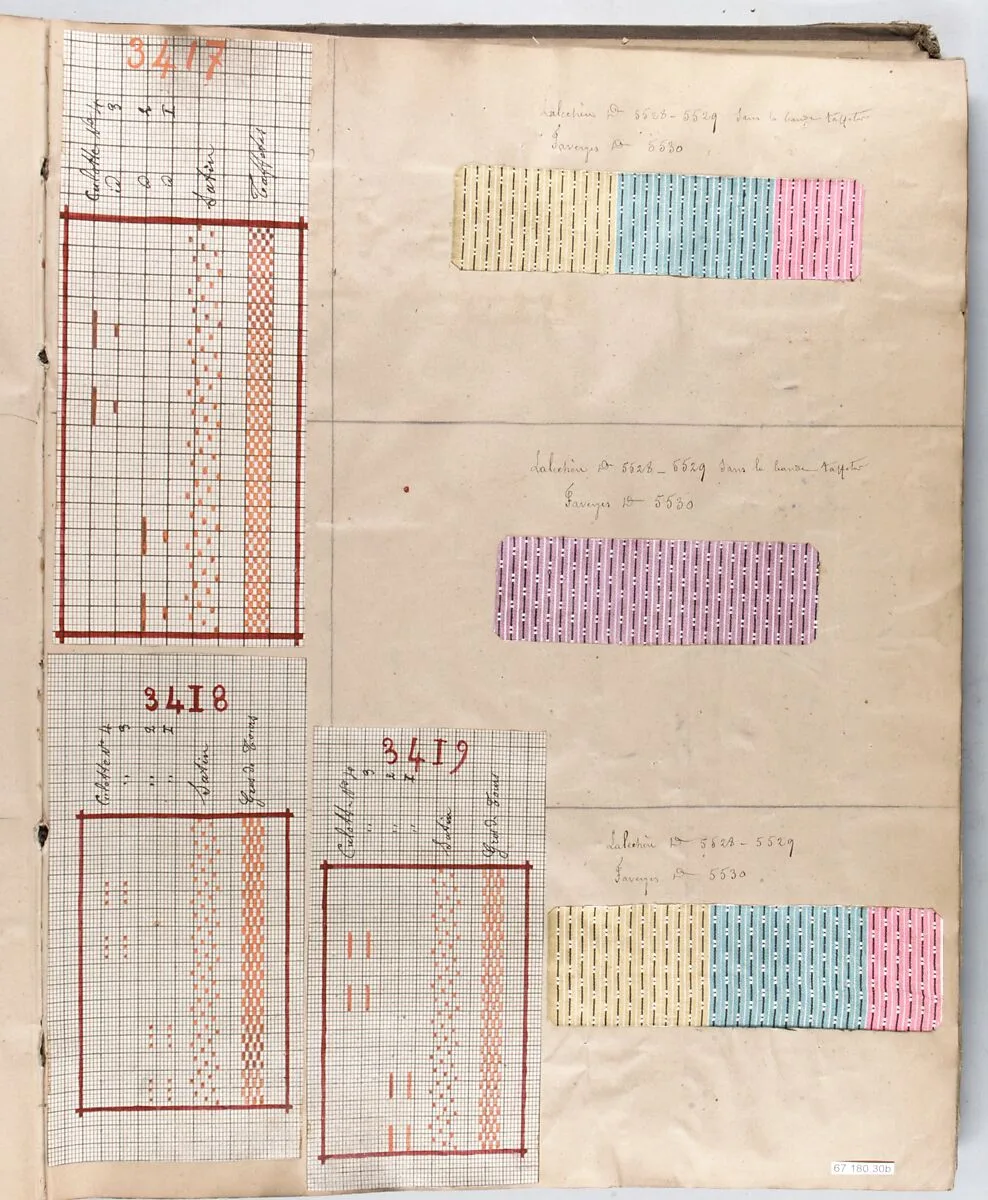 3417
Culotte N° 4
d° 3
d° 2
d° I
Satin
Taffetas
5528 - 5529 dans la bande taffetas
Faverges D° 5530
5528 - 5529 dans la bande taffetas
Faverges D° 5530
34I8
Culotte N° 4
" 3
" 2
" I
Satin
Gros de Tours
34I9
Culotte N° 4
" 3
" 2
" I
Satin
Gros de Tours
5528 - 5529
Faverges D° 5530
67 180 30b